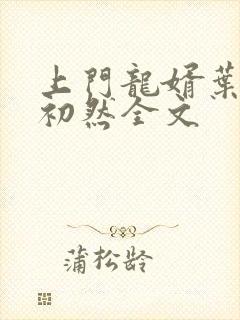 上門龍婿葉
初然全文
蒲松龄